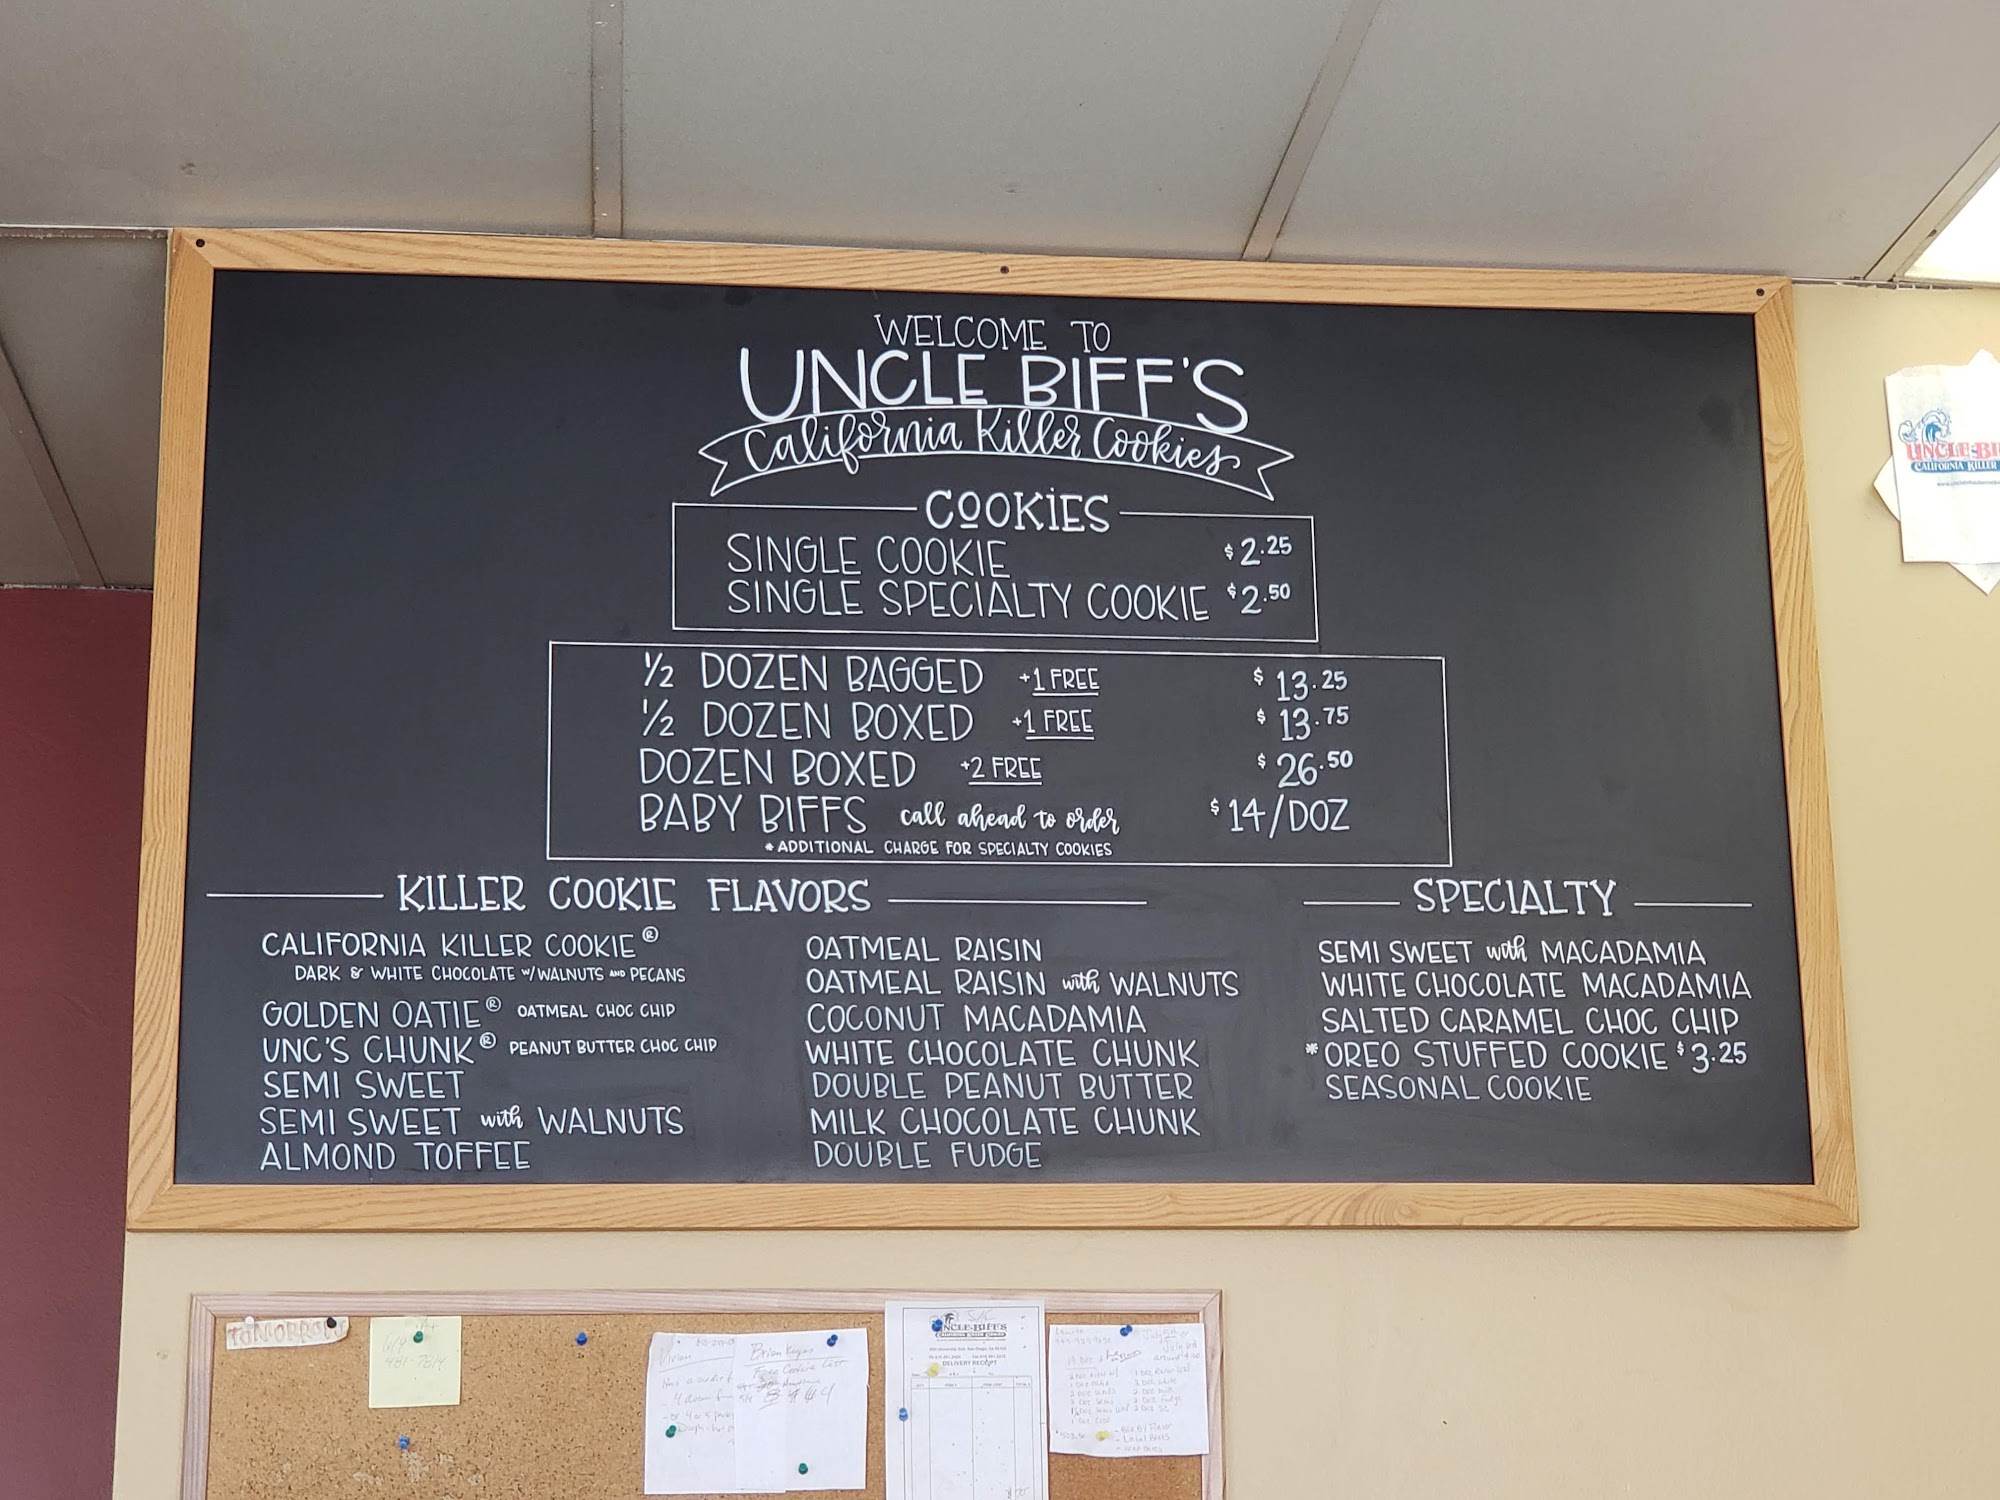 WELCOME TO
UNCLE BIFF'S
California Killer Cookies
COOKIES
SINGLE COOKIE $2.25
SINGLE SPECIALTY COOKIE $2.50
1/2 DOZEN BAGGED +1 FREE $13.25
1/2 DOZEN BOXED +1 FREE $13.75
DOZEN BOXED +2 FREE $26.50
BABY BIFFS call ahead to order $14/DOZ
*ADDITIONAL CHARGE FOR SPECIALTY COOKIES
KILLER COOKIE FLAVORS
CALIFORNIA KILLER COOKIE®
DARK & WHITE CHOCOLATE W/WALNUTS AND PECANS
GOLDEN OATIE® OATMEAL CHOC CHIP
UNC'S CHUNK® PEANUT BUTTER CHOC CHIP
SEMI SWEET
SEMI SWEET with WALNUTS
ALMOND TOFFEE
OATMEAL RAISIN
OATMEAL RAISIN with WALNUTS
COCONUT MACADAMIA
WHITE CHOCOLATE CHUNK
DOUBLE PEANUT BUTTER
MILK CHOCOLATE CHUNK
DOUBLE FUDGE
SPECIALTY
SEMI SWEET with MACADAMIA
WHITE CHOCOLATE MACADAMIA
SALTED CARAMEL CHOC CHIP
*OREO STUFFED COOKIE $3.25
SEASONAL COOKIE
UNCLE BI
CALIFORNIA KILLER
TOMORROW
Vivian
Brian
Free Cookie List
UNCLE BIFF'S
DELIVERY RECEIPT